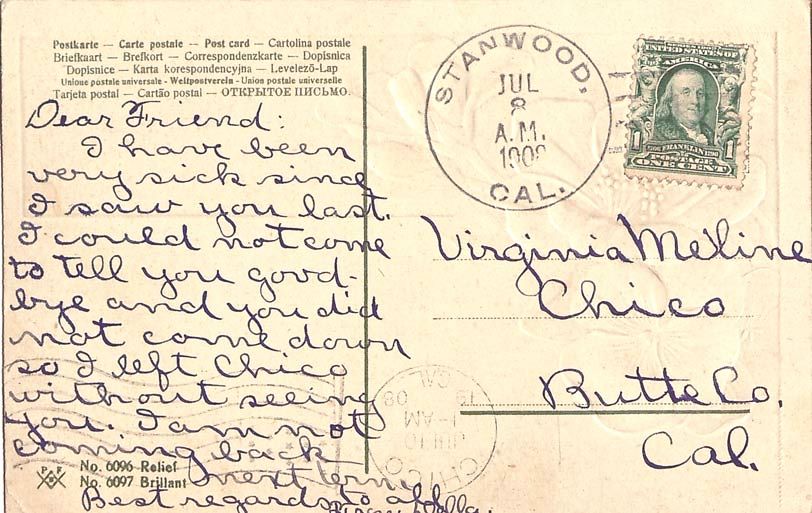 Postkarte — Carte postale — Post card — Cartolina postale
Briefkaart — Brefkort — Correspondenzkarte — Dopisnica
Dopisnice — Karta korespondencyjna — Levelező-Lap
Unione postale universale - Weltpostverein - Union postale universelle
Tarjeta postal — Cartão postal — ОТКРЫТОЕ ПИСЬМО.
Dear Friend:
I have been
very sick since
I saw you last.
I could not come
to tell you good-
bye and you did
not come down
so I left Chico
without seeing
you. I am not
coming back
next term.
Best regards to all
No. 6096 Relief
No. 6097 Brillant
PFB
STANWOOD,
JUL
8
A.M.
1908
CAL.
UNITED STATES OF
AMERICA
1 FRANKLIN 1
POSTAGE
ONE CENT
Virginia Meline
Chico
Butte Co.
Cal.
CHICO
JUL 10
-AM
CAL
08